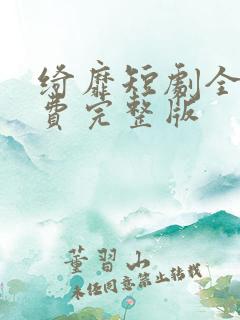 绮靡短劇全
費完整版
董習山
未任同意禁止转载